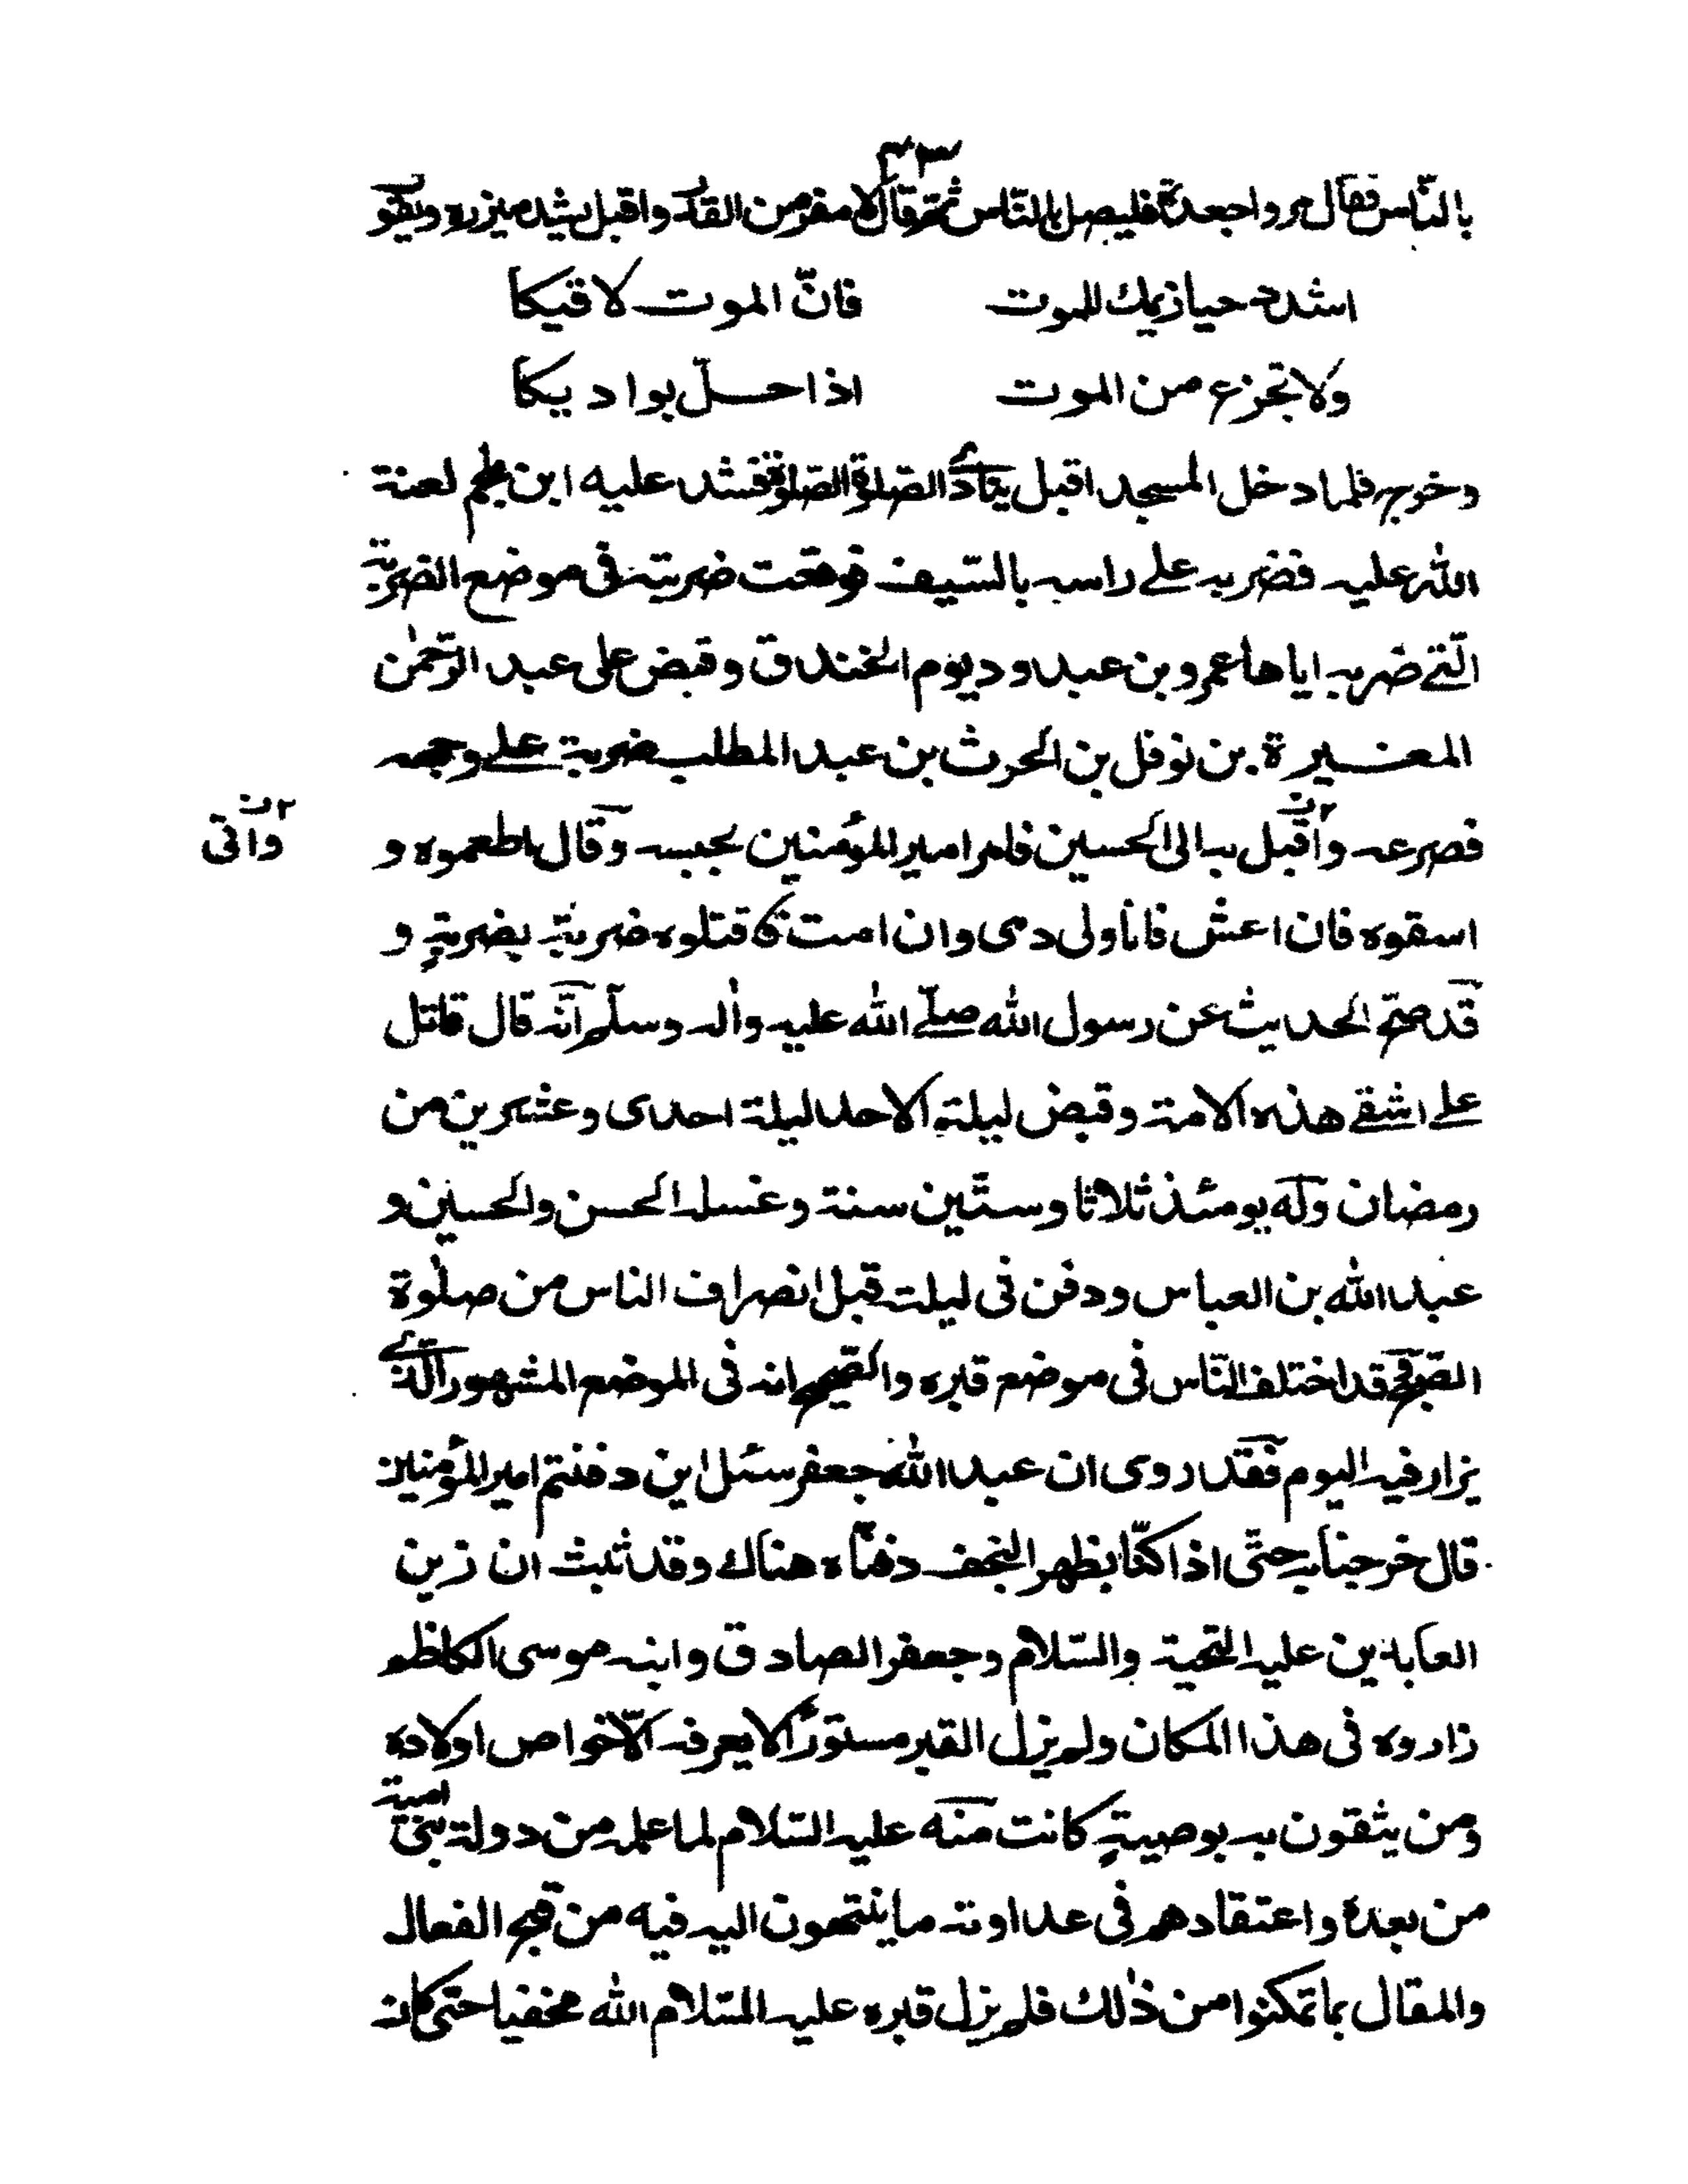 ۴۳
بالنّاس فقال مروا جعدة فليصل بالنّاس ثمّ قال لا مفر من القدر واقبل يشد ميزره ويقو
اشدد حيازيمك للموت فانّ الموت لاقيكا
ولا تجزع من الموت اذا حلّ بواديكا
وخرج فلما دخل المسجد اقبل ينادى الصلوة الصلوة فشد عليه ابن ملجم لعنة
الله عليه فضربه على راسه بالسّيف فوقعت ضربته فى موضع الضربة
الّتى ضربه اياها عمرو بن عبد ود يوم الخندق وقبض على عبد الرّحمٰن
المغيرة بن نوفل بن الحرث بن عبد المطلب ضربة على وجهه
فصرعه واقبل به الى الحسين فامر امير المؤمنين بحبسه وقال اطعموه و
واتى
اسقوه فان اعش فانا ولى دمى وان امت فاقتلوه ضربة بضربةٍ و
قد صحّ الحديث عن رسول الله صلّى الله عليه واٰله وسلّم انّه قال قاتل
على اشقى هذه الامة وقبض ليلة الاحد ليلة احدى وعشرين من
رمضان وله يومئذ ثلاثا وستّين سنة وغسله الحسن والحسين و
عبد الله بن العباس ودفن فى ليلته قبل انصراف الناس من صلٰوة
الصّبح وقد اختلف النّاس فى موضع قبره والصّحيح انه فى الموضع المشهور الّذى
يزار فيه اليوم فقد روى ان عبد الله جعفر سئل اين دفنتم امير المؤمنين
قال خرجنا به حتّى اذا كنّا بظهر النجف دفنّاه هناك وقد ثبت ان زين
العابدين عليه التحية والسّلام وجعفر الصادق وابنه موسى الكاظم
زاروه فى هذا المكان ولم يزل القبر مستورًا لا يعرفه الّا خواص اولاده
ومن يثقون به بوصيةٍ كانت منه عليه السّلام لما علمه من دولة بنى امية
من بعده واعتقادهم فى عداوته ما ينتهون اليه فيه من قبح الفعال
والمقال بما تمكنوا من ذٰلك فلم يزل قبره عليه السّلام الله مخفيا حتى كان